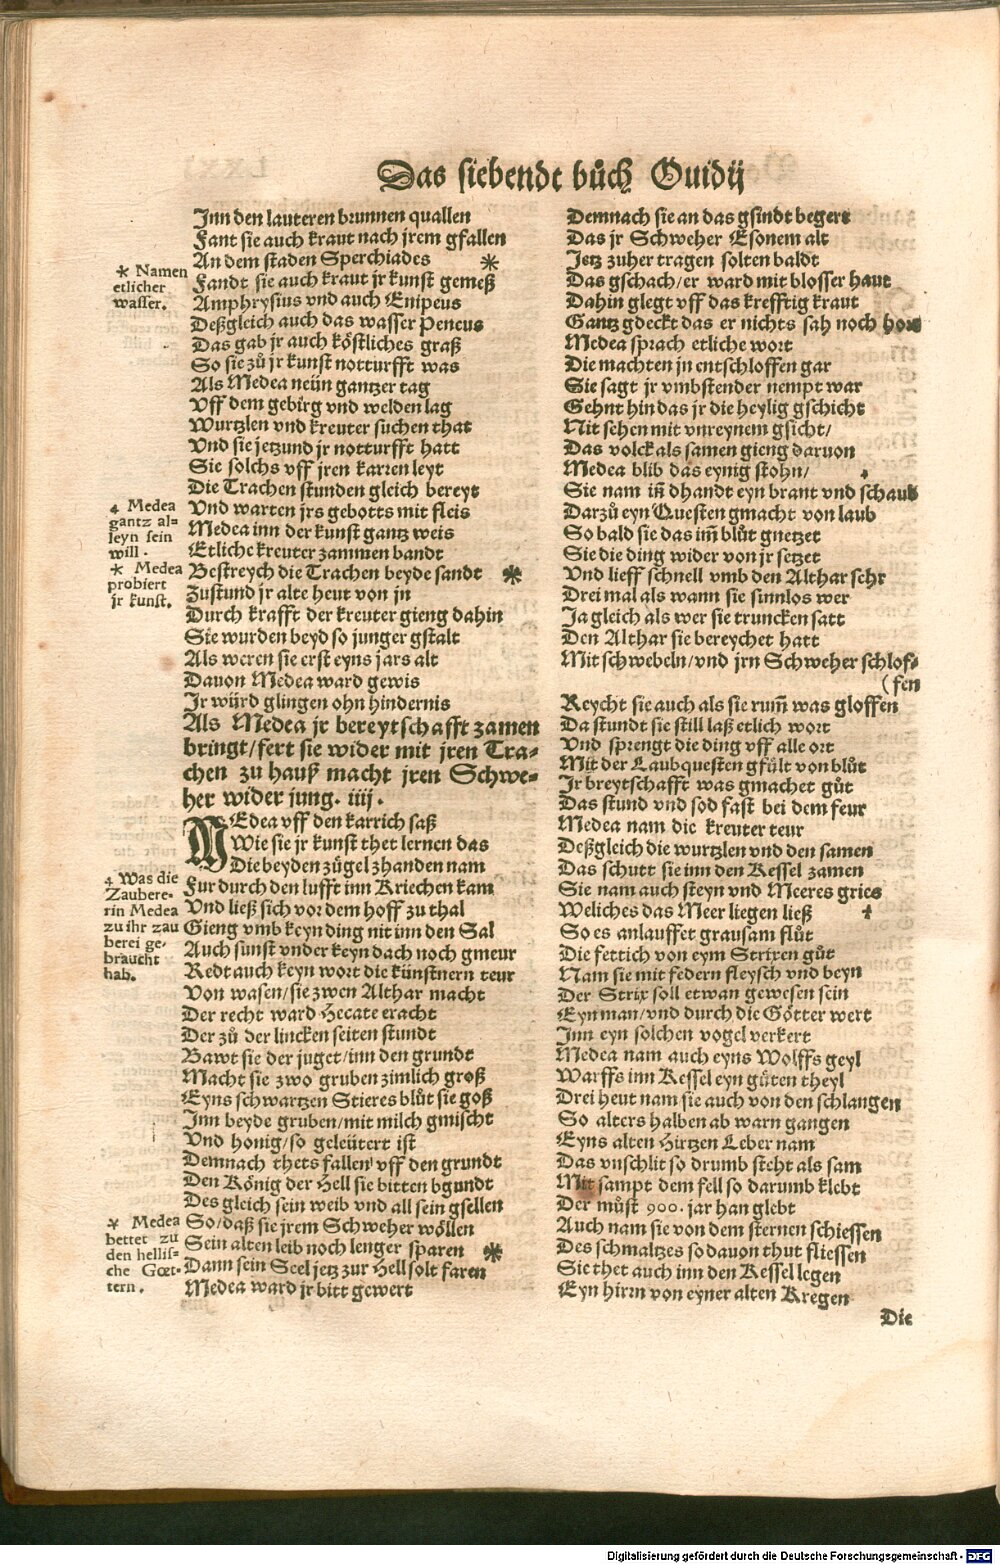 Das siebendt bůch Ouidij
Inn den lauteren brunnen quallen
Fant sie auch kraut nach jrem gfallen
An dem staden Sperchiades *
Fandt sie auch kraut jr kunst gemeß
Amphrysius vnd auch Enipeus
Deßgleich auch das wasser Peneus
Das gab jr auch köstliches graß
So sie zů jr kunst notturfft was
Als Medea neün gantzer tag
Vff dem gebirg vnd welden lag
Wurtzlen vnd kreuter suchen that
Vnd sie jetzund jr notturfft hatt
Sie solchs vff jren karren leyt
Die Trachen stunden gleich bereyt
Vnd warten jrs gebotts mit fleis
Medea inn der kunst gantz weis
Etliche kreuter zammen bandt
Bestreych die Trachen beyde sandt *
Zustund jr alte heut von jn
Durch krafft der kreuter gieng dahin
Sie wurden beyd so junger gstalt
Als weren sie erst eyns jars alt
Dauon Medea ward gewis
Jr würd glingen ohn hindernis
Als Medea jr bereytschafft zamen
bringt/fert sie wider mit jren Tra-
chen zu hauß macht jren Schwe-
her wider jung. iiij.
MEdea vff den karrich saß
Wie sie jr kunst thet lernen das
Die beyden zügel zhanden nam
Fur durch den lufft inn Kriechen kam
Vnd ließ sich vor dem hoff zu thal
Gieng vmb keyn ding nit inn den Sal
Auch sunst vnder keyn dach noch gmeur
Redt auch keyn wort die künstnern teur
Von wasen/sie zwen Althar macht
Der recht ward Hecate eracht
Der zů der lincken seiten stundt
Bawt sie der juget/inn den grundt
Macht sie zwo gruben zimlich groß
Eyns schwartzen Stieres blůt sie goß
Inn beyde gruben/mit milch gmischt
Vnd honig/so geleütert ist
Demnach thets fallen vff den grundt
Den König der Hell sie bitten bgundt
Des gleich sein weib vnd all sein gsellen
So/daß sie jrem Schweher wöllen
Sein alten leib noch lenger sparen *
Dann sein Seel jetz zur Hell solt faren
Medea ward jr bitt gewert
* Namen
etlicher
wasser.
Medea
gantz al-
leyn sein
will.
* Medea
probiert
jr kunst.
Was die
Zaubere-
rin Medea
zu ihr zau
berei ge-
braucht
hab.
* Medea
bettet zu
den hellis-
che Gœt-
tern.
Demnach sie an das gsindt begert
Das jr Schweher Esonem alt
Jetz zuher tragen solten baldt
Das gschach/er ward mit blosser haut
Dahin glegt vff das krefftig kraut
Gantz gdeckt das er nichts sah noch hort
Medea sprach etliche wort
Die machten jn entschloffen gar
Sie sagt jr vmbstender nempt war
Gehnt hin das jr die heylig gschicht
Nit sehen mit vnreynem gsicht/
Das volck als samen gieng daruon
Medea blib das eynig stohn/
Sie nam iñ dhandt eyn brant vnd schaub
Darzů eyn Questen gmacht von laub
So bald sie das im̃ blůt gnetzet
Sie die ding wider von jr setzet
Vnd lieff schnell vmb den Althar sehr
Drei mal als wann sie sinnlos wer
Ja gleich als wer sie truncken satt
Den Althar sie bereychet hatt
Mit schwebeln/vnd jrn Schweher schlof-
(fen
Reycht sie auch als sie rum̃ was gloffen
Da stundt sie still laß etlich wort
Vnd sprengt die ding vff alle ort
Mit der Laubquesten gfült von blůt
Jr breytschafft was gmachet gůt
Das stund vnd sod fast bei dem feur
Medea nam die kreuter teur
Deßgleich die wurtzlen vnd den samen
Das schutt sie inn den Kessel zamen
Sie nam auch steyn vnd Meeres gries
Weliches das Meer liegen ließ
So es anlauffet grausam flůt
Die fettich von eym Strixen gůt
Nam sie mit federn fleysch vnd beyn
Der Strix soll etwan gewesen sein
Eyn man/vnd durch die Götter wert
Inn eyn solchen vogel verkert
Medea nam auch eyns Wolffs geyl
Warffs inn Kessel eyn gůten theyl
Drei heut nam sie auch von den schlangen
So alters halben ab warn gangen
Eyns alten Hirtzen Leber nam
Das vnschlit so drumb steht als sam
Mit sampt dem fell so darumb klebt
Der můst 900. jar han glebt
Auch nam sie von dem sternen schiessen
Des schmaltzes so dauon thut fliessen
Sie thet auch inn den Kessel legen
Eyn hirrn von eyner alten Kregen
Die
Digitalisierung gefördert durch die Deutsche Forschungsgemeinschaft - DFG